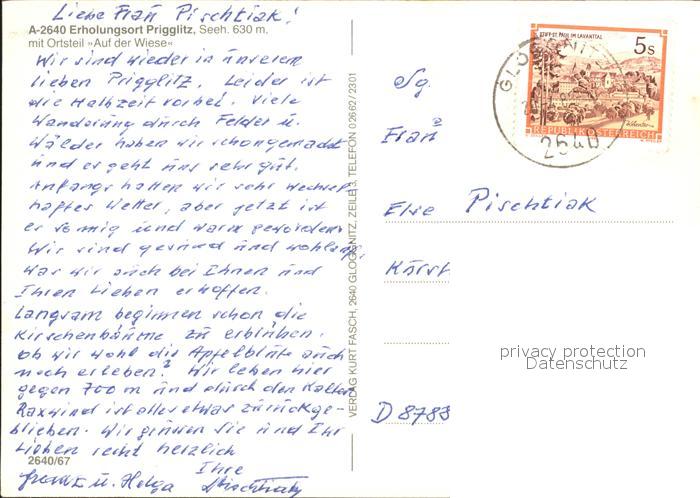 Liebe Frau Pischtiak!
A-2640 Erholungsort Prigglitz, Seeh. 630 m,
mit Ortsteil »Auf der Wiese«
Wir sind wieder in unserem
lieben Prigglitz. Leider ist
die Halbzeit vorbei. Viele
Wanderung durch Felder u.
Wälder haben wir schon gemacht
und es geht uns sehr gut.
Anfangs hatten wir sehr wechsel
haftes Wetter, aber jetzt ist
es sonnig und warm geworden.
Wir sind gesund und wohlauf,
was wir auch bei Ihnen und
Ihren Lieben erhoffen.
Langsam beginnen schon die
Kirschenbäume zu erblühen.
Ob wir wohl die Apfelblüte auch
noch erleben? Wir leben hier
gegen 700 m und durch den kalten
Raxwind ist alles etwas zurückge-
blieben. Wir grüssen Sie und Ihr
Lieben recht herzlich
2640/67
Ihre
Franz u. Helga
VERLAG KURT FASCH, 2640 GLOGGNITZ, ZEILE 3, TELEFON 02662/2301
STIFT ST. PAUL IM LAVANTTAL
5 S
REPUBLIK ÖSTERREICH
GLOGGNITZ
2640
Sg
Frau
Else Pischtiak
Karst
D 8783
privacy protection
Datenschutz